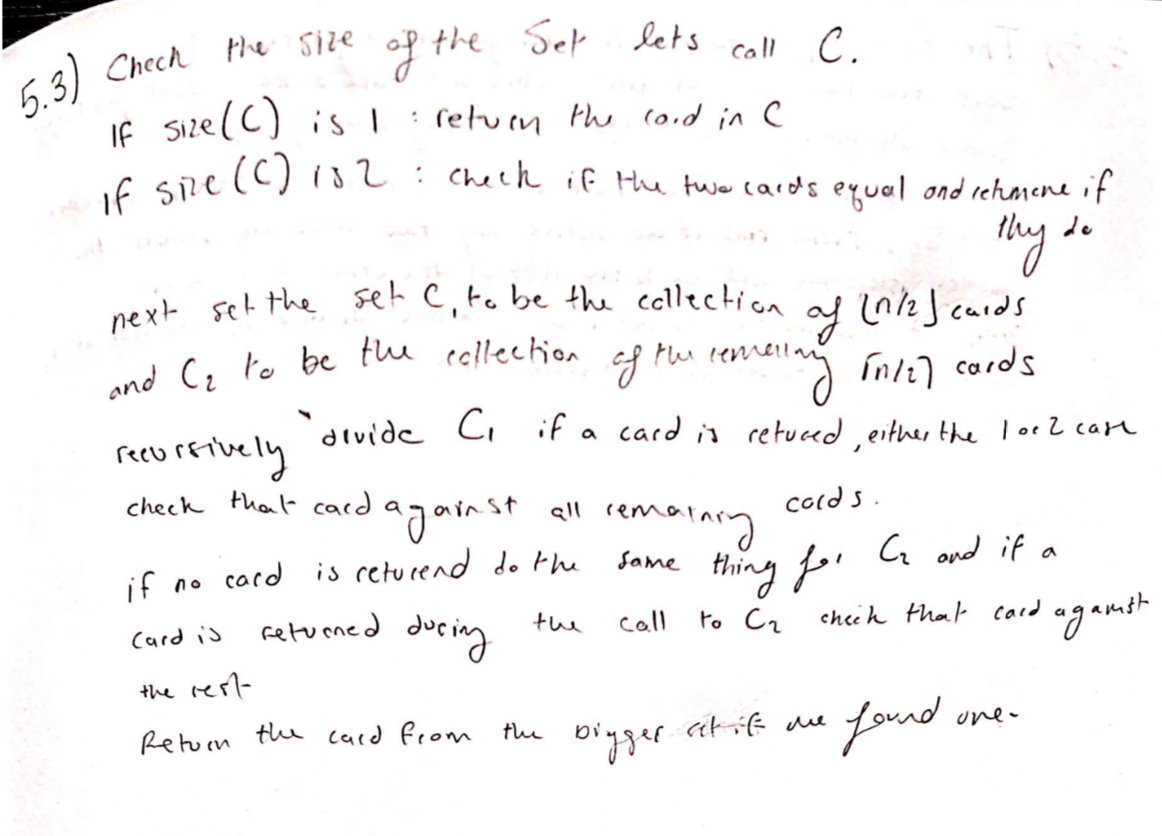 5.3) Check the size of the Set lets call C.
If size(C) is 1 : return the card in C
if size(C) is 2 : check if the two cards equal and if
they do
next set the set C₁ to be the collection of ⌊n/2⌋ cards
and C₂ to be the collection of the remaining ⌈n/2⌉ cards
recursively divide C₁ if a card is retured, either the 1 or 2 case
check that card against all remaining cards.
if no card is returend do the same thing for C₂ and if a
card is returned during the call to C₂ check that card against
the rest
Return the card from the bigger if we found one.